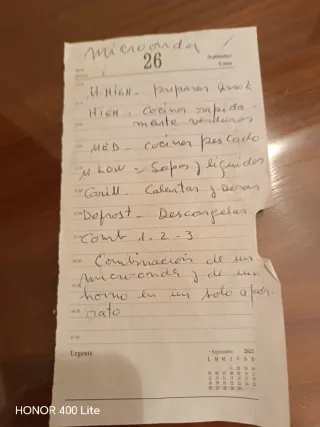 microondas
26
Septiembre
Lunes
M HIGH. preparar
HIGH. Cocinar rápida-
mente verduras
MED - Cocinar pescado
M LOW - Sopas y liquidos
Grill. Calentar y Dorar
Defrost - Descongelar
Comb 1 - 2 - 3
Combinación de un
microonda y de un
horno en un solo apar-
rato
Urgente
Septiembre 2022
L M M J V S D
HONOR 400 Lite